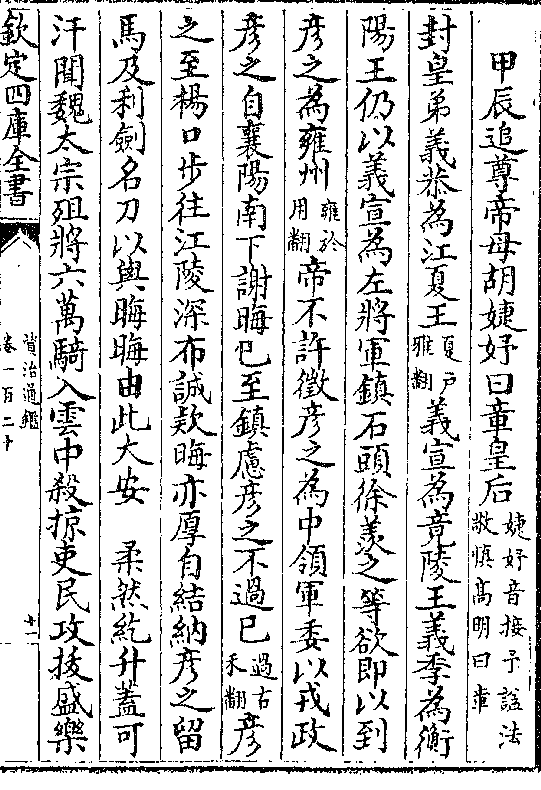 甲辰追尊帝母胡婕妤曰章皇后婕妤音接予諡法敬慎高明曰章
封皇弟義恭為江夏王夏戶雅翻義宣為竟陵王義季為衡
陽王仍以義宣為左將軍鎮石頭徐羨之等欲即以到
彥之為雍州雍於用翻帝不許徵彥之為中領軍委以戎政
彥之自襄陽南下謝晦已至鎮慮彥之不過已過古禾翻彥
之至楊口步往江陵深布誠欵晦亦厚自結納彥之留
馬及利劍名刀以與晦晦由此大安　柔然紇升蓋可
汗聞魏太宗殂將六萬騎入雲中殺掠吏民攻拔盛樂
欽定四庫全書
資治通鑑
卷一百二十
十一